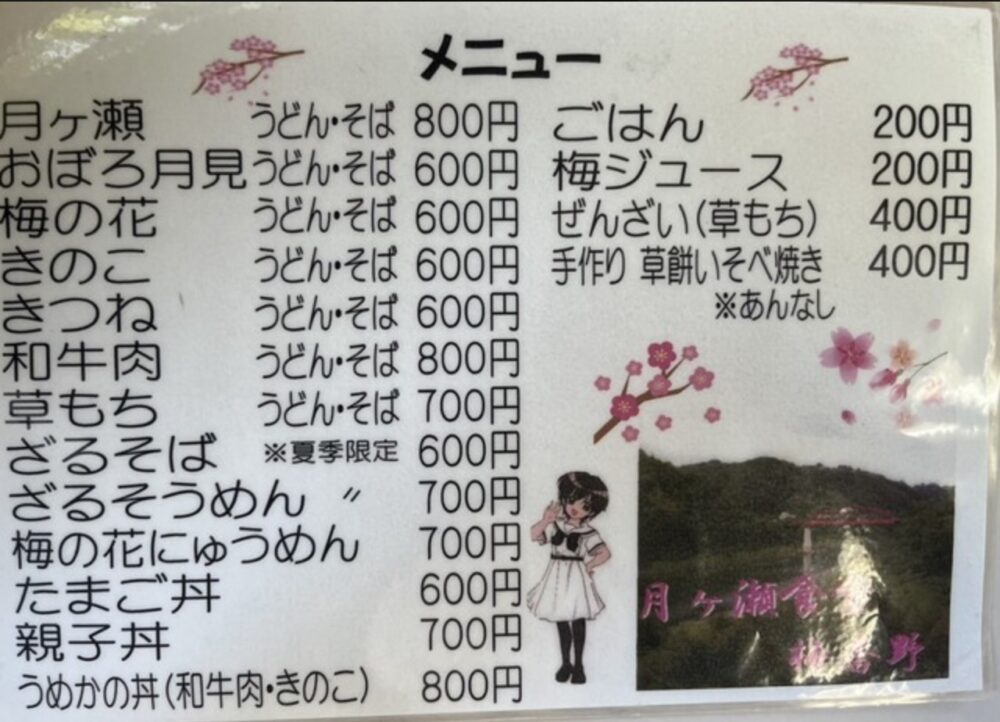 メニュー
月ヶ瀬 うどん・そば 800円
おぼろ月見うどん・そば 600円
梅の花 うどん・そば 600円
きのこ うどん・そば 600円
きつね うどん・そば 600円
和牛肉 うどん・そば 800円
草もち うどん・そば 700円
ざるそば ※夏季限定 600円
ざるそうめん 〃 700円
梅の花にゅうめん 700円
たまご丼 600円
親子丼 700円
うめかの丼(和牛肉・きのこ) 800円
ごはん 200円
梅ジュース 200円
ぜんざい(草もち) 400円
手作り 草餅いそべ焼き 400円
※あんなし
月ヶ瀬食
野